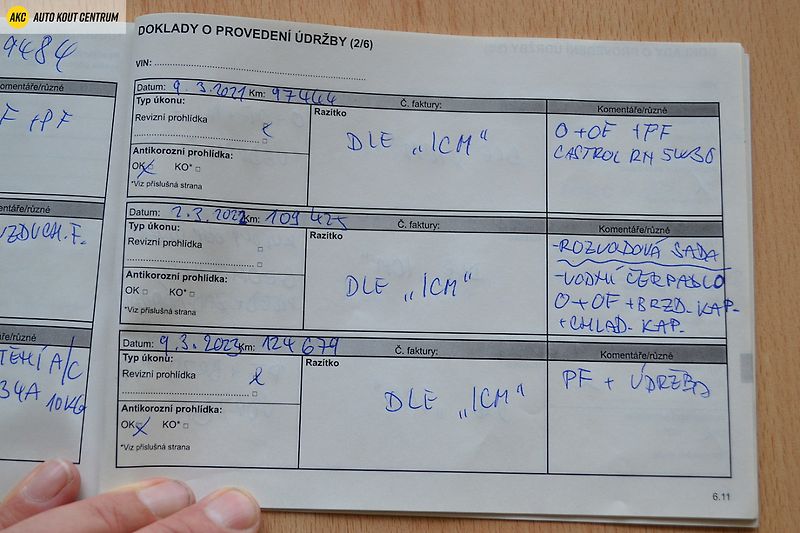 AKC AUTO KOUT CENTRUM
9484
omentáře/různé
F +PF
entáře/různé
VZDUCH.F.
ře/různé
TĚNÍ A/C
34A 10KG
DOKLADY O PROVEDENÍ ÚDRŽBY (2/6)
VIN:
Datum: 9.3.2021 Km: 97444
Č. faktury:
Komentáře/různé
Typ úkonu:
Revizní prohlídka
Antikorozní prohlídka:
OK KO*
*Viz příslušná strana
Razítko
DLE „ICM"
O+OF +PF
CASTROL RN 5W30
Datum: 2.3.2022 Km: 109 425
Č. faktury:
Komentáře/různé
Typ úkonu:
Revizní prohlídka
Antikorozní prohlídka:
OK KO*
*Viz příslušná strana
Razítko
DLE „ICM"
-ROZVODOVÁ SADA
-VODNÍ ČERPADLO
O+OF +BRZD. KAP.
+CHLAD. KAP.
Datum: 9.3.2023 Km: 124 679
Č. faktury:
Komentáře/různé
Typ úkonu:
Revizní prohlídka
Antikorozní prohlídka:
OK KO*
*Viz příslušná strana
Razítko
DLE „ICM"
PF + ÚDRŽBA
6.11